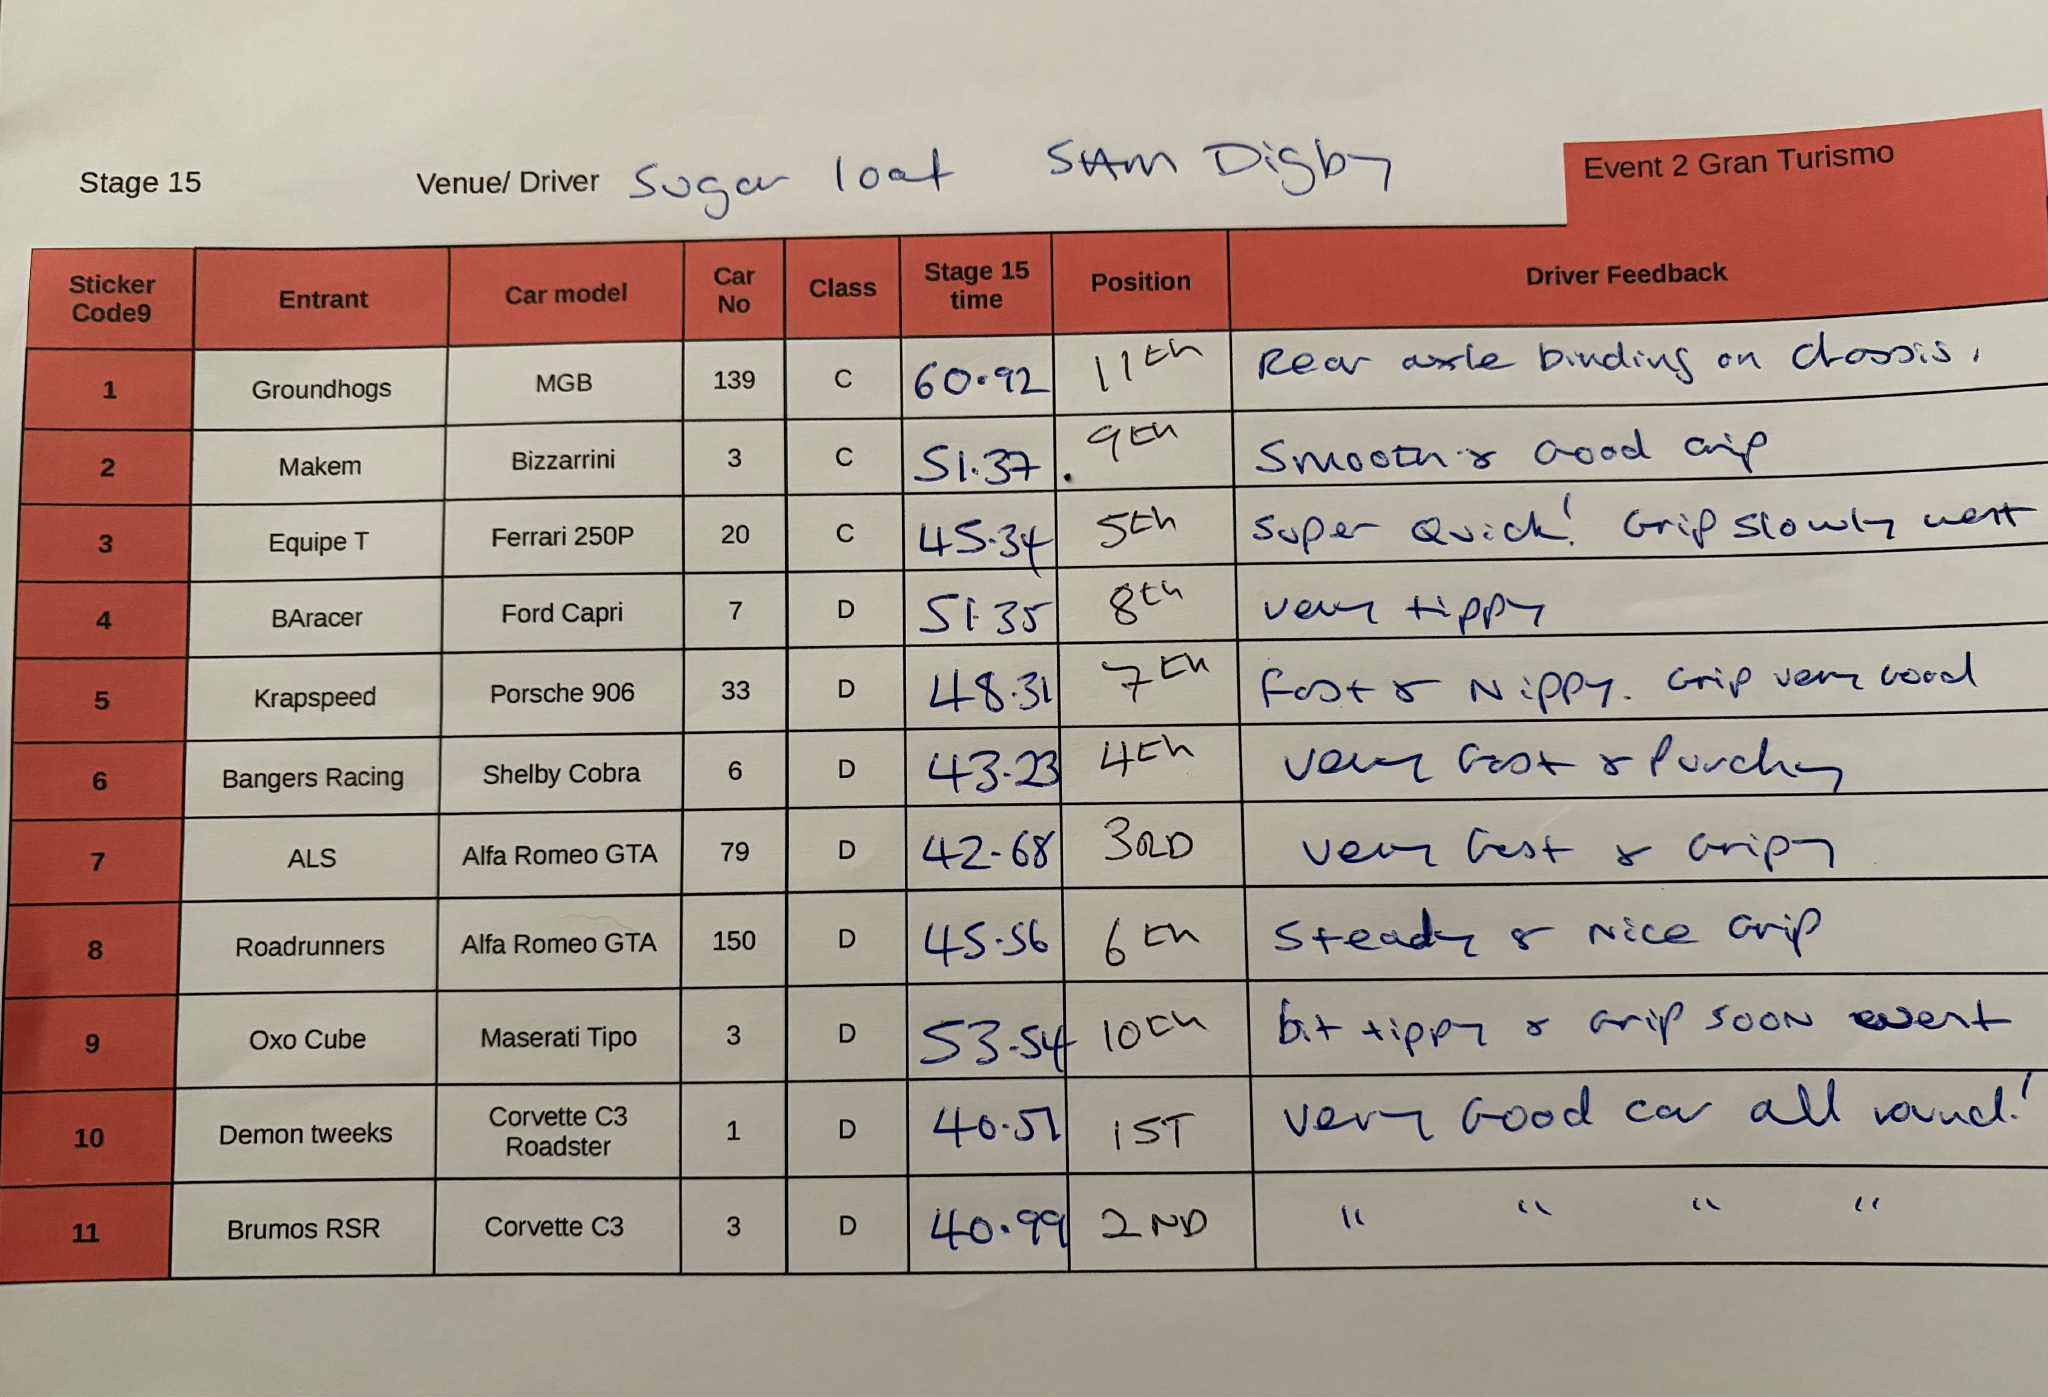 Stage 15 Venue/ Driver Sugar loaf SAM Digby Event 2 Gran Turismo
Sticker Code9 Entrant Car model Car No Class Stage 15 time Position Driver Feedback
1 Groundhogs MGB 139 C 60.92 11th Rear axle binding on chassis.
2 Makem Bizzarrini 3 C 51.37 9th Smooth & Good Grip
3 Equipe T Ferrari 250P 20 C 45.34 5th Super Quick! Grip slowly went
4 BAracer Ford Capri 7 D 51.35 8th very tippy
5 Krapspeed Porsche 906 33 D 48.31 7th Fast & Nippy. Grip very Good
6 Bangers Racing Shelby Cobra 6 D 43.23 4th very fast & Punchy
7 ALS Alfa Romeo GTA 79 D 42.68 3RD very fast & Gripy
8 Roadrunners Alfa Romeo GTA 150 D 45.56 6th Steady & Nice Grip
9 Oxo Cube Maserati Tipo 3 D 53.54 10th bit tippy & Grip SOON went
10 Demon tweeks Corvette C3 Roadster 1 D 40.51 1ST very Good car all round!
11 Brumos RSR Corvette C3 3 D 40.99 2ND " " " "